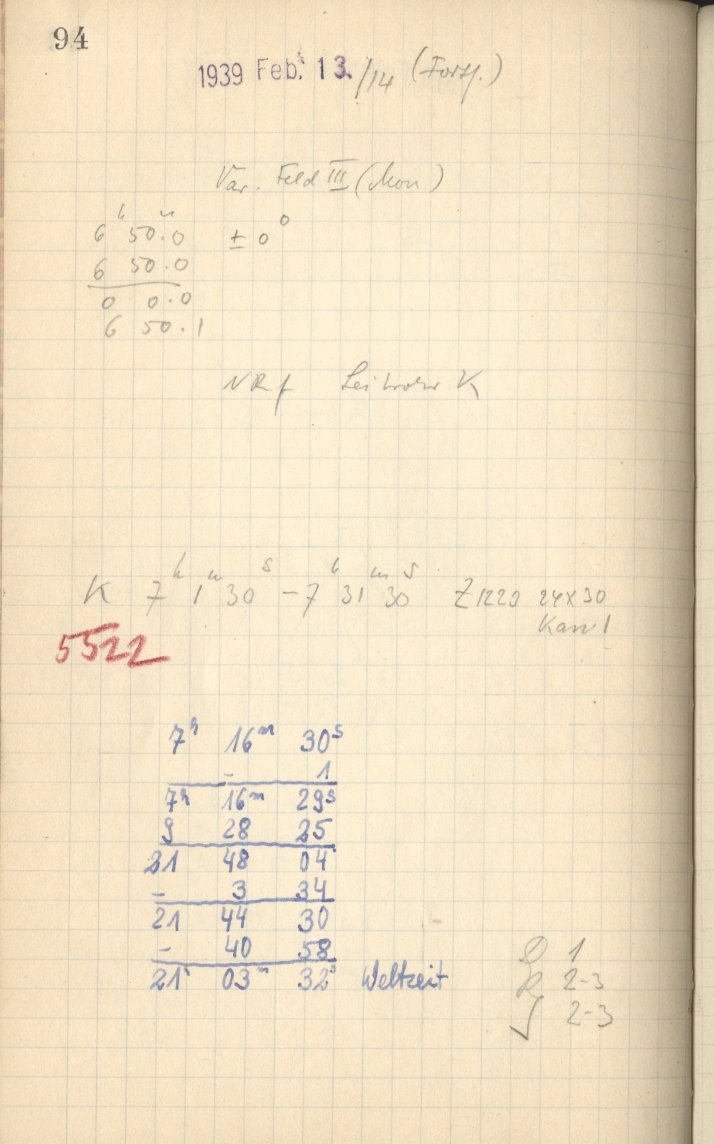 94
1939 Feb. 13./14 (Forts.)
Var. Feld III (Mon)
6ʰ 50ᵐ.0 ± 0⁰
6 50.0
0 0.0
6 50.1
NRf Leitrohr K
K 7ʰ 1ᵐ 30ˢ – 7ʰ 31ᵐ 30ˢ Z 1229 24x30
5522
7ʰ 16ᵐ 30ˢ
- 1
7ʰ 16ᵐ 29ˢ
9 28 25
21 48 04
- 3 34
21 44 30
- 40 58
21ʰ 03ᵐ 32ˢ Weltzeit
D 1
R 2-3
J 2-3